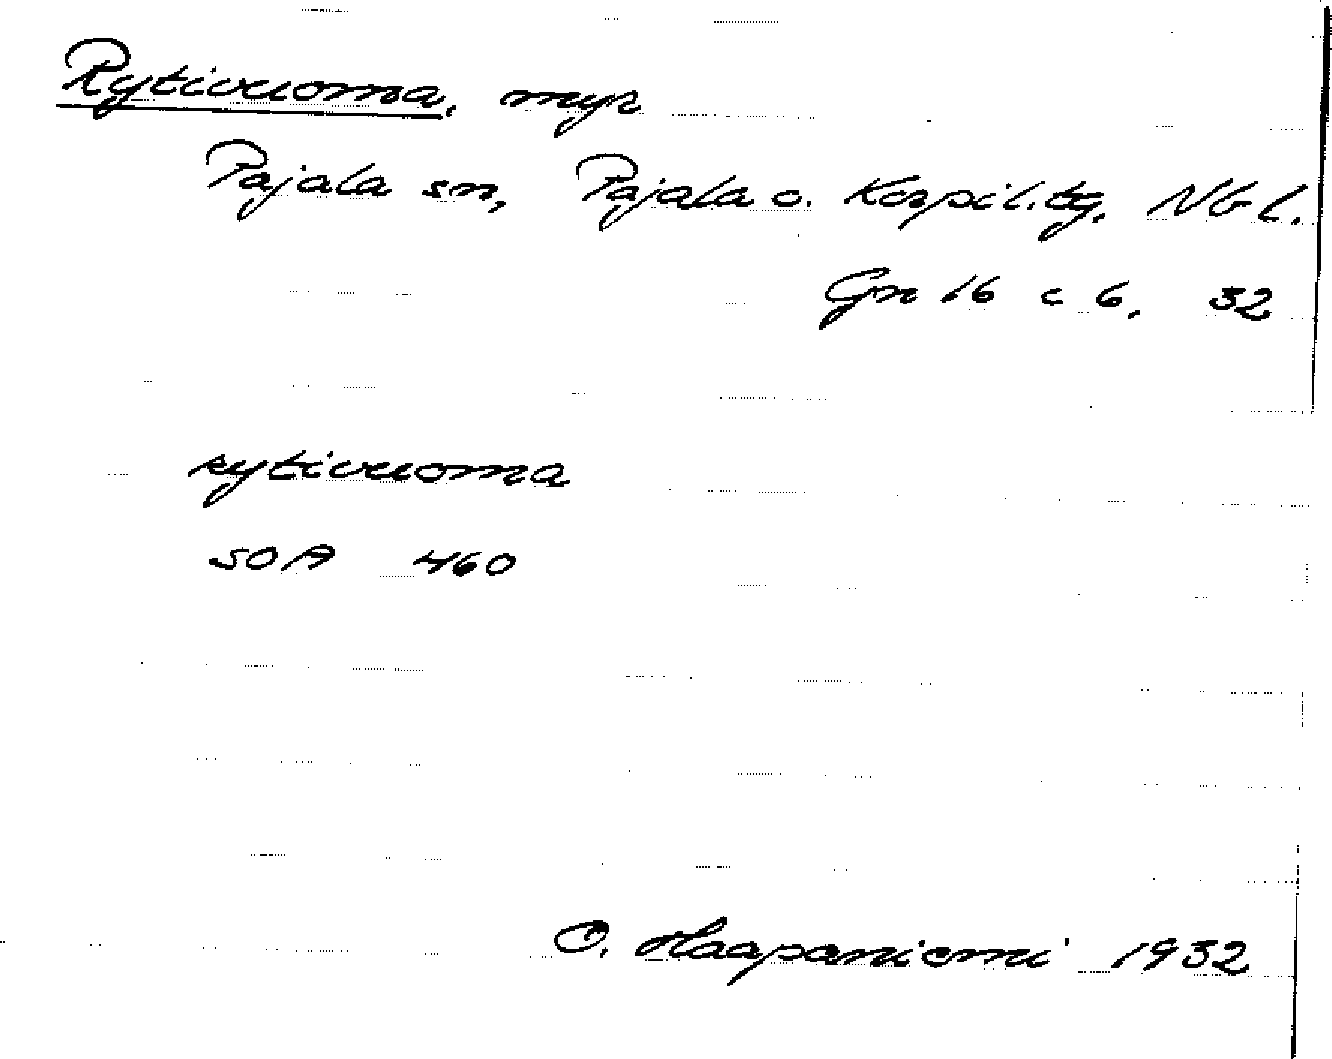 Rytivuoma, myr
Pajala sn, Pajala o. Korpil. tg. Nb l.
Gn 16 c 6, 32
rytivuoma
SOA 460
O. Haapaniemi 1932